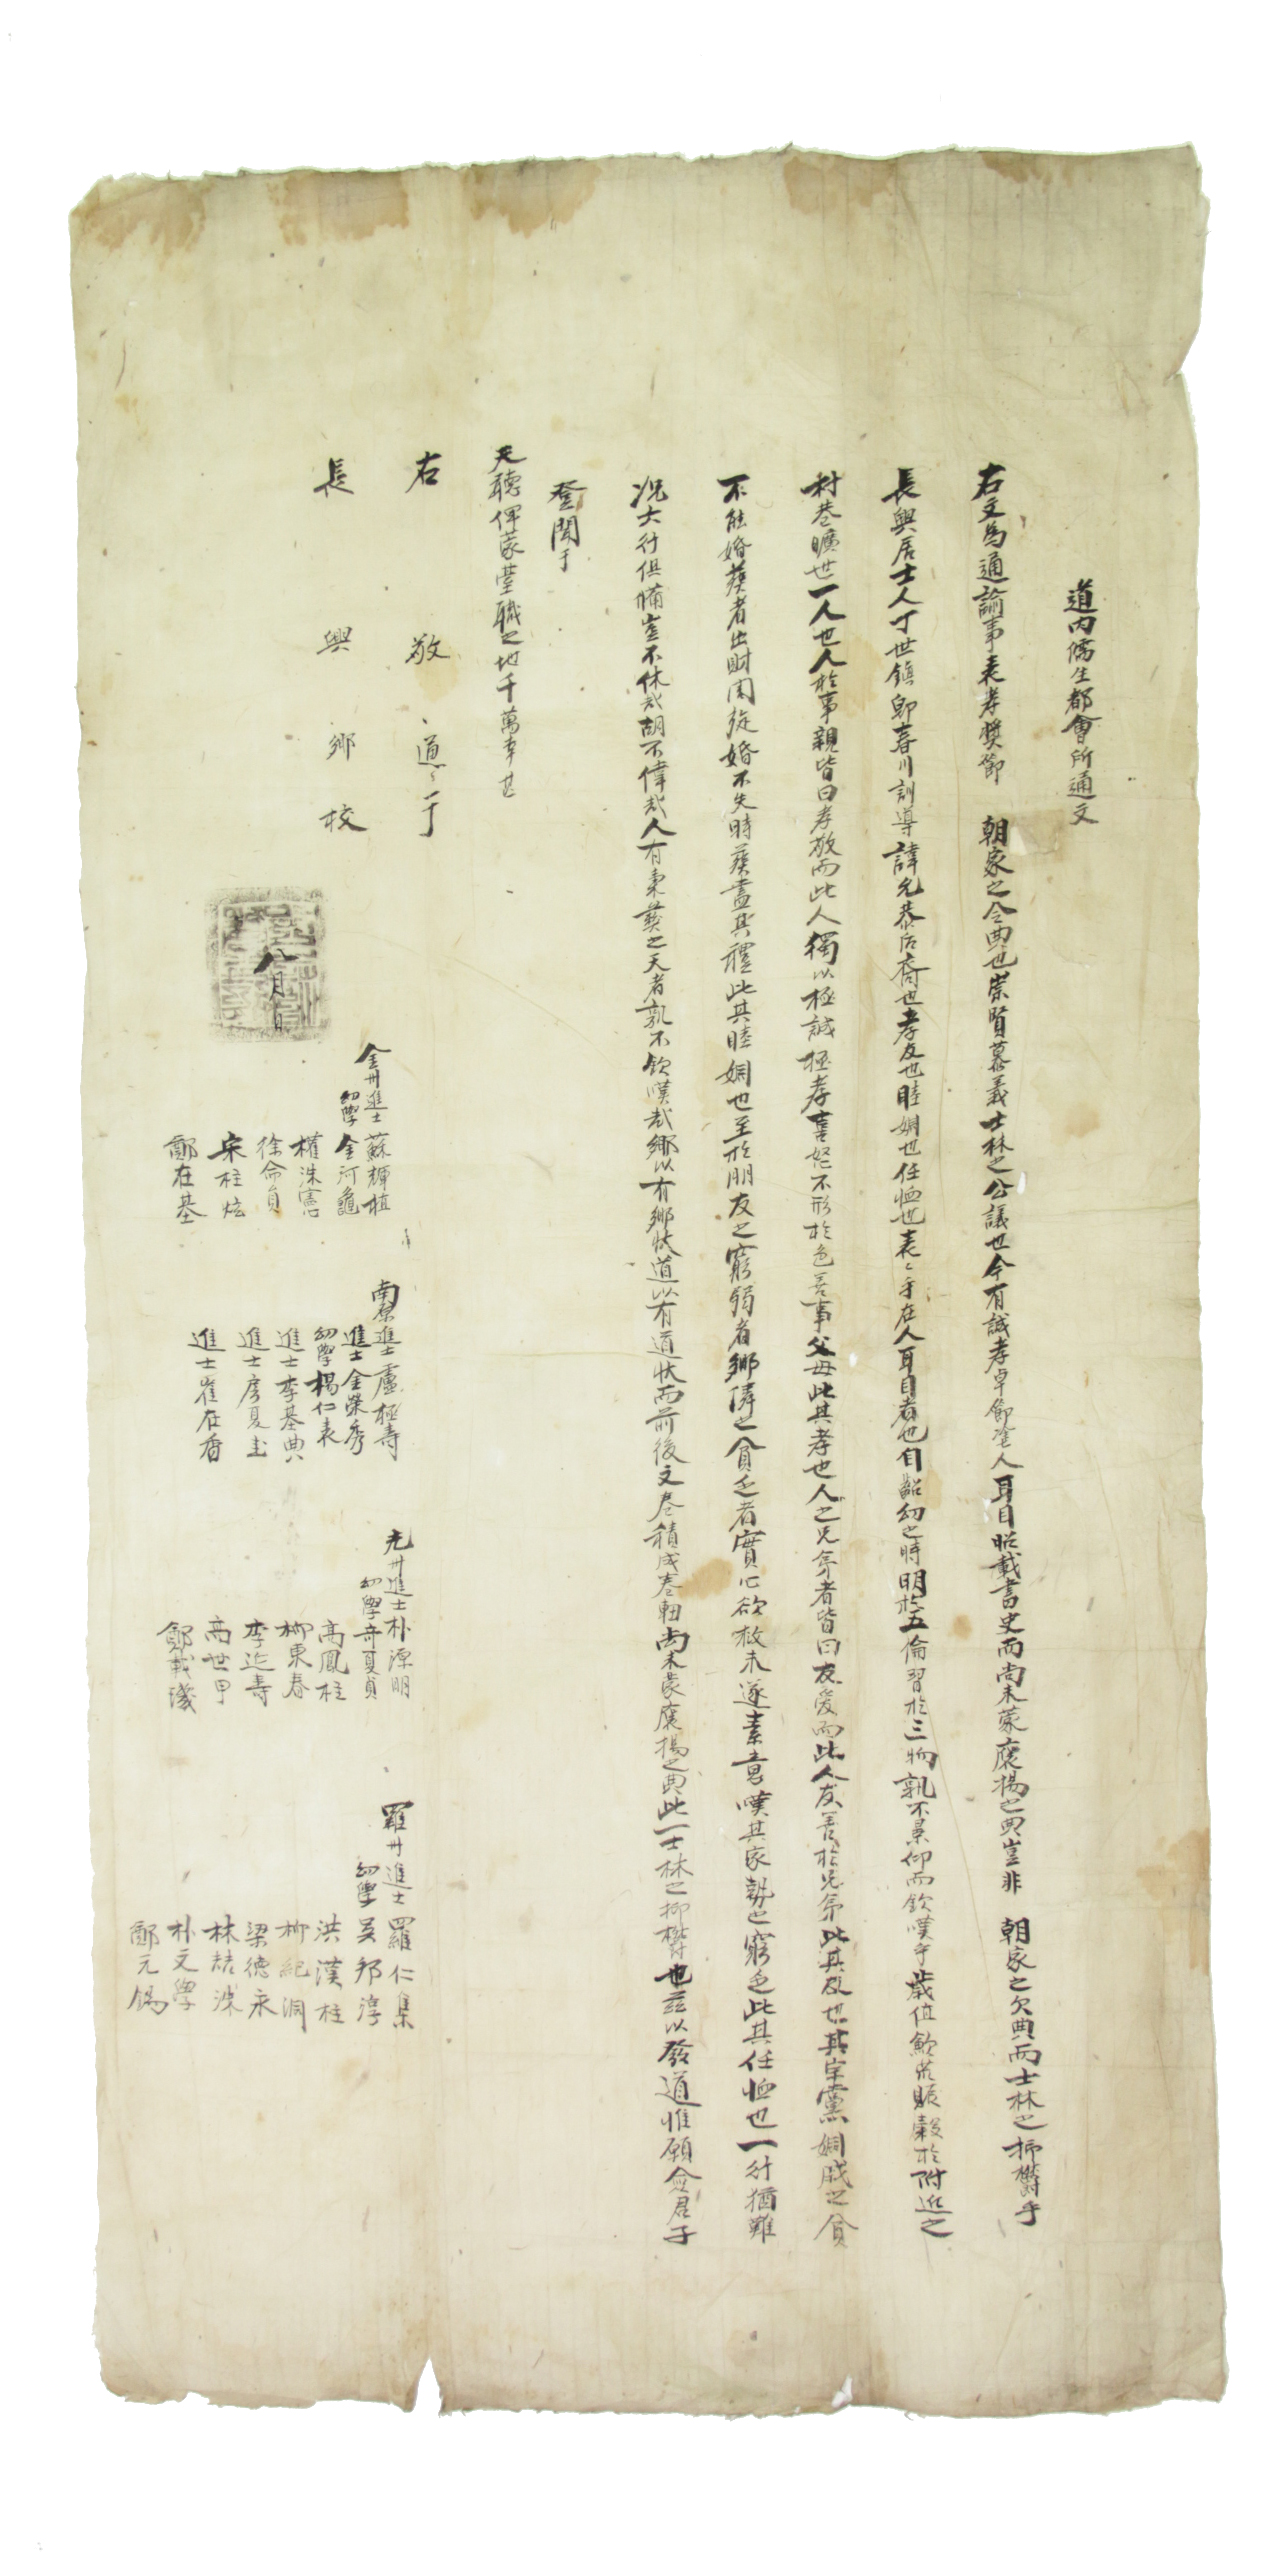 道內儒生都會所通文
右文爲通諭事表孝奬節 朝家之令典也崇賢慕義士林之公議也今有誠孝卓節塗人耳目昭載書史而尙未蒙褒揚之典豈非 朝家之欠典而士林之抑欝乎
長興居士人丁世鎭卽春川訓導諱允恭后裔也孝友也睦婣也任恤也表〻乎在人耳目者也自齠幼之時明於五倫習於三物孰不景仰而欽嘆乎歲値歉荒賑穀於附近之
村巷曠世一人也人於事親皆曰孝敬而此人獨以極誠極孝喜怒不形於色善事父母此其孝也人之兄弟者皆曰友愛而此人友善於兄弟此其友也其宗黨婣戚之貧
不能婚葬者出財周旋婚不失時葬盡其禮此其睦婣也至於朋友之窮弱者鄕隣之貧乏者實心欲救未遂素意嘆其家勢之窮乏此其任恤也一行猶難
况六行俱備豈不休哉胡不偉哉人有秉彛之天者孰不欽嘆哉鄕以有鄕狀道以有道狀而前後文卷積成卷軸尙未蒙褒揚之典此一士林之抑欝也玆以發道惟願僉君子
登聞于
天聽俾蒙 職之地千萬幸甚
右 敬 通〻于
長 興 鄕 校
八月 日
金州進士蘇輝植
幼學金河龜
權洙憲
徐命員
宋柱炫
鄭在基
南原進士盧極壽
進士金榮秀
幼學楊仁表
進士李基典
進士房夏圭
進士崔在香
光州進士朴源明
幼學奇夏貞
高鳳柱
柳東春
李近壽
高世甲
鄭載璣
羅州進士羅仁集
幼學吳邦淳
洪漢柱
柳紀洞
梁德永
林喆洙
朴文學
鄭元錫